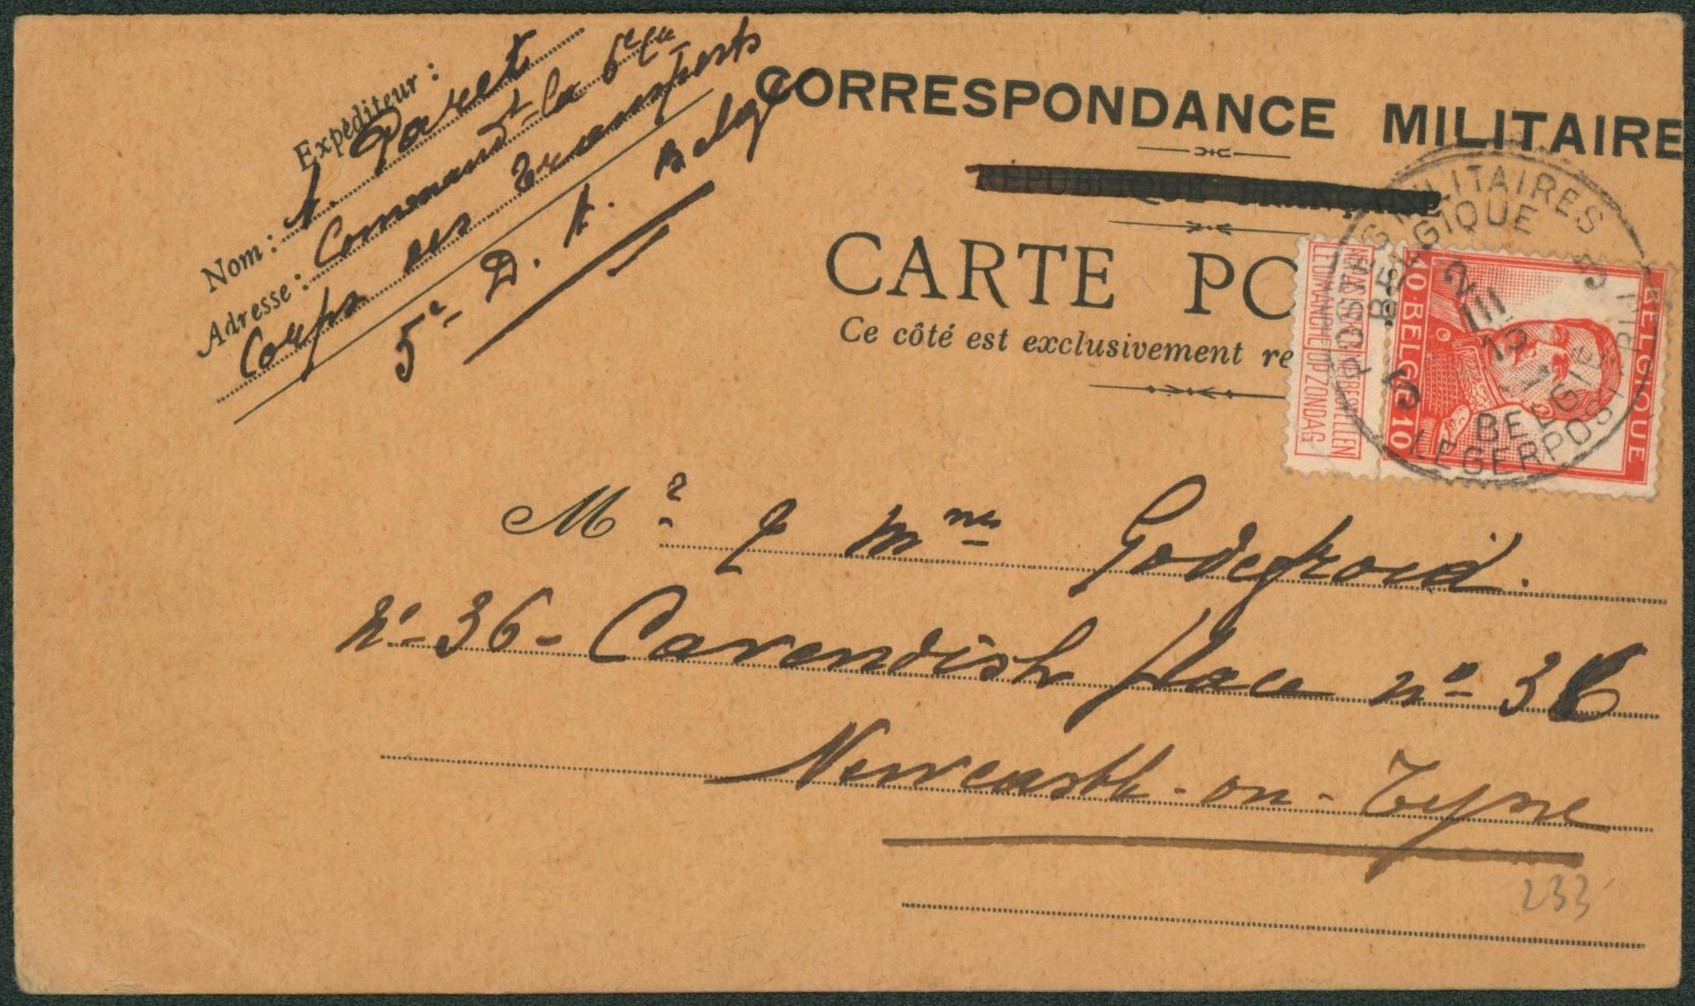 Expéditeur :
Nom : A. Paret
Adresse : Command^t la 6^e C^ie
Corps des Transports
5^e D. A. Belge
CORRESPONDANCE MILITAIRE
RÉPUBLIQUE FRANÇAISE
CARTE PO
Ce côté est exclusivement re
POSTES MILITAIRES
BELGIQUE
5 5
2
III
15
BELGIE
LEGERPOSTERIJ
BELGIQUE
10·BELGIË·10
BESTELLEN
OP ZONDAG
M^r & M^me Godefroid.
N°-36- Cavendish place n° 36
Newcastle-on-Tyne
233